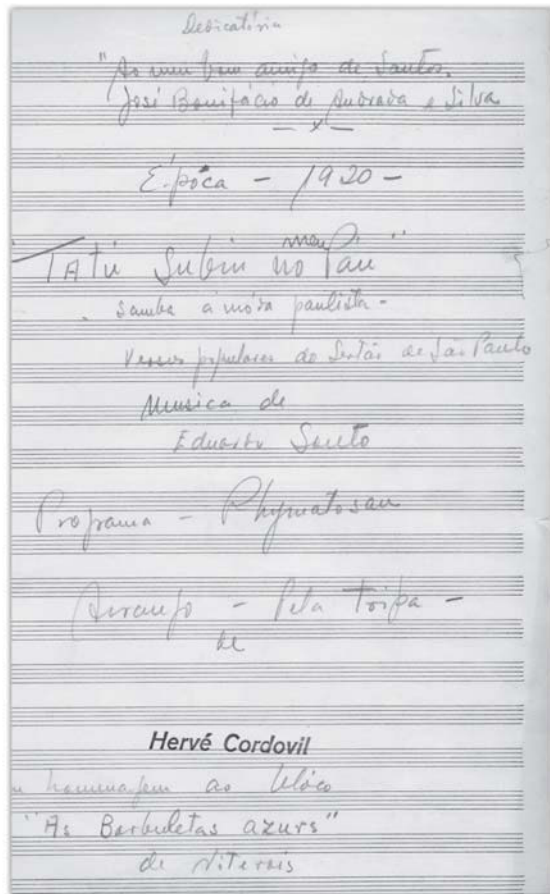 Dedicatória
"Ao meu bom amigo de Santos.
José Bonifácio de Andrada e Silva
— x —
Época - 1920 -
"Tatú Subiu no meu Páu"
Samba á móda paulista -
Versos populares do Sertão de São Paulo
Musica de
Eduardo Souto
Programa - Phymatosan
Arranjo - Pela tripa -
de
Hervé Cordovil
homenagem ao blóco
"As Barbuletas azurs"
de Niterois